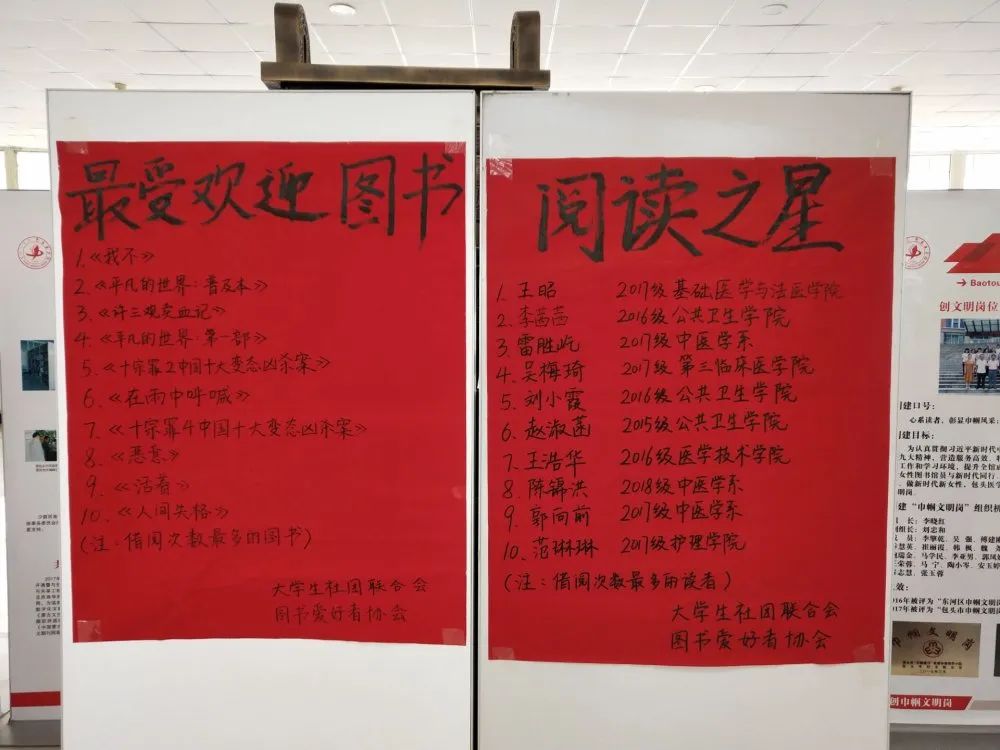 最受欢迎图书
1.《我不》
2.《平凡的世界:普及本》
3.《许三观卖血记》
4.《平凡的世界·第一部》
5.《十宗罪2中国十大变态凶杀案》
6.《在雨中呼喊》
7.《十宗罪4中国十大变态凶杀案》
8.《恶意》
9.《活着》
10.《人间失格》
(注:借阅次数最多的图书)
大学生社团联合会
图书爱好者协会
阅读之星
1. 王昭 2017级基础医学与法医学院
2. 李茜茜 2016级公共卫生学院
3. 雷胜屹 2017级中医学系
4. 吴梅琦 2017级第三临床医学院
5. 刘小霞 2016级公共卫生学院
6. 赵淑菡 2015级公共卫生学院
7. 王浩华 2016级医学技术学院
8. 陈锦洪 2018级中医学系
9. 郭向前 2017级中医学系
10. 范琳琳 2017级护理学院
(注:借阅次数最多的读者)
大学生社团联合会
图书爱好者协会
→ Baotou
创文明岗位
建口号:
心系读者,彰显巾帼风采;
建目标:
为认真贯彻习近平新时代
九大精神,营造服务高效、
工作和学习环境,提升全馆
女性图书馆员与新时代同行、
做新时代新女性,包头医学
明岗。
建"巾帼文明岗"组织机
长:李晓红
组长:刘忠和
巾帼文明岗
创巾帼文明岗